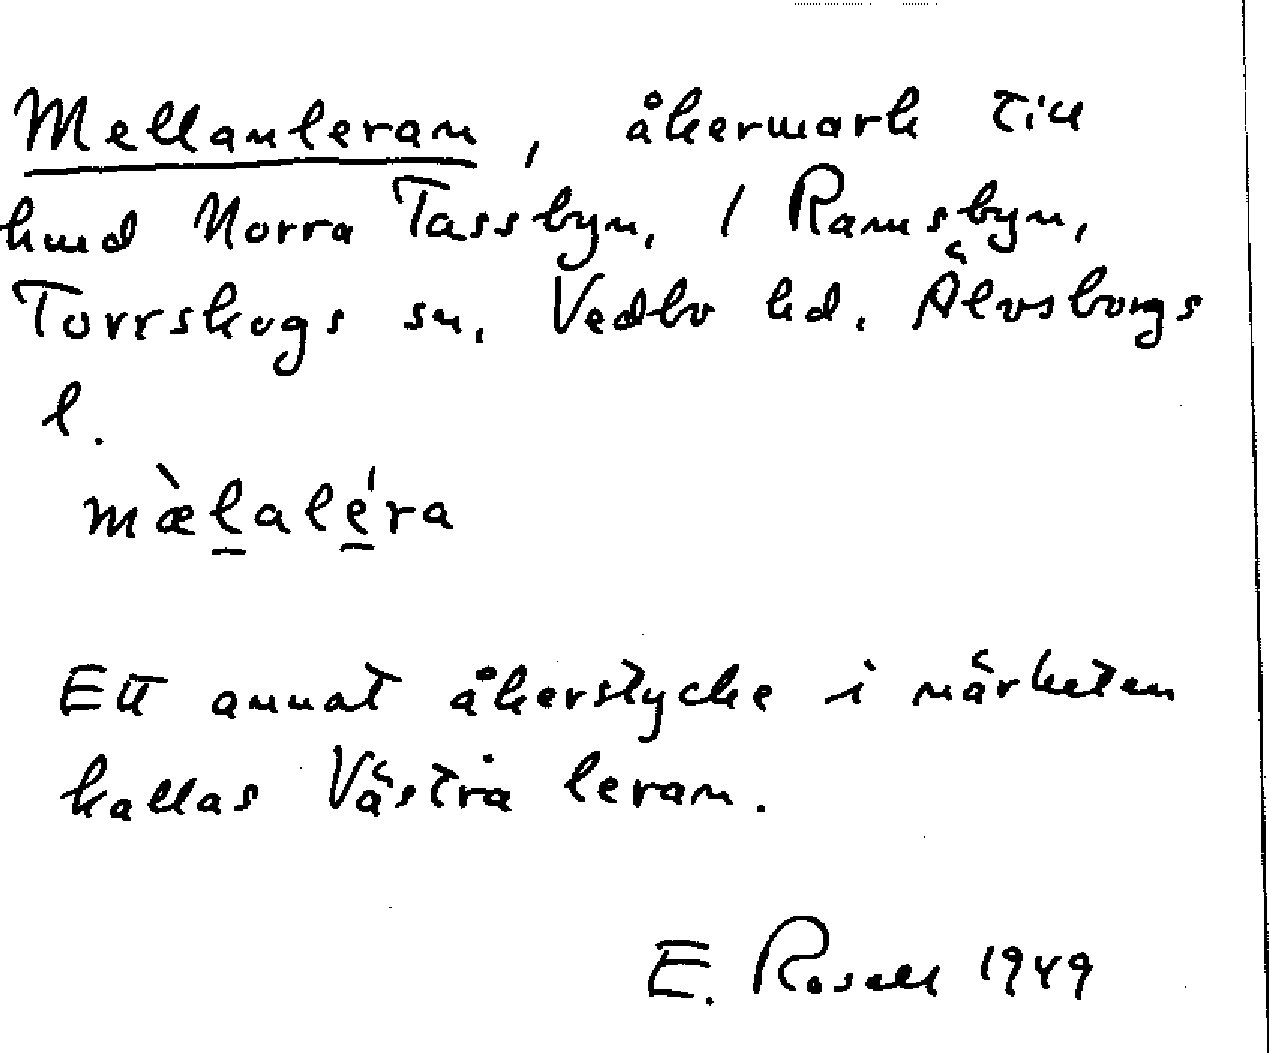 Mellanleran, åkermark till
hmd Norra Tassbyn, 1 Ramsbyn,
Torrskogs sn. Vedbo hd. Älvsborgs
l.
mæ̀l̠ale̠̍ra
Ett annat åkerstycke i närheten
kallas Västra leran.
E. Rosell 1949